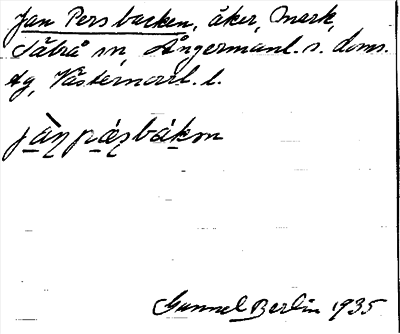 Jan Persbacken, åker, mark,
Säbrå sn, Ångermanl. s. doms.
dg, Västernorrl. l.
jàn pæ̀ʂbákən
Gunnel Berlin 1935